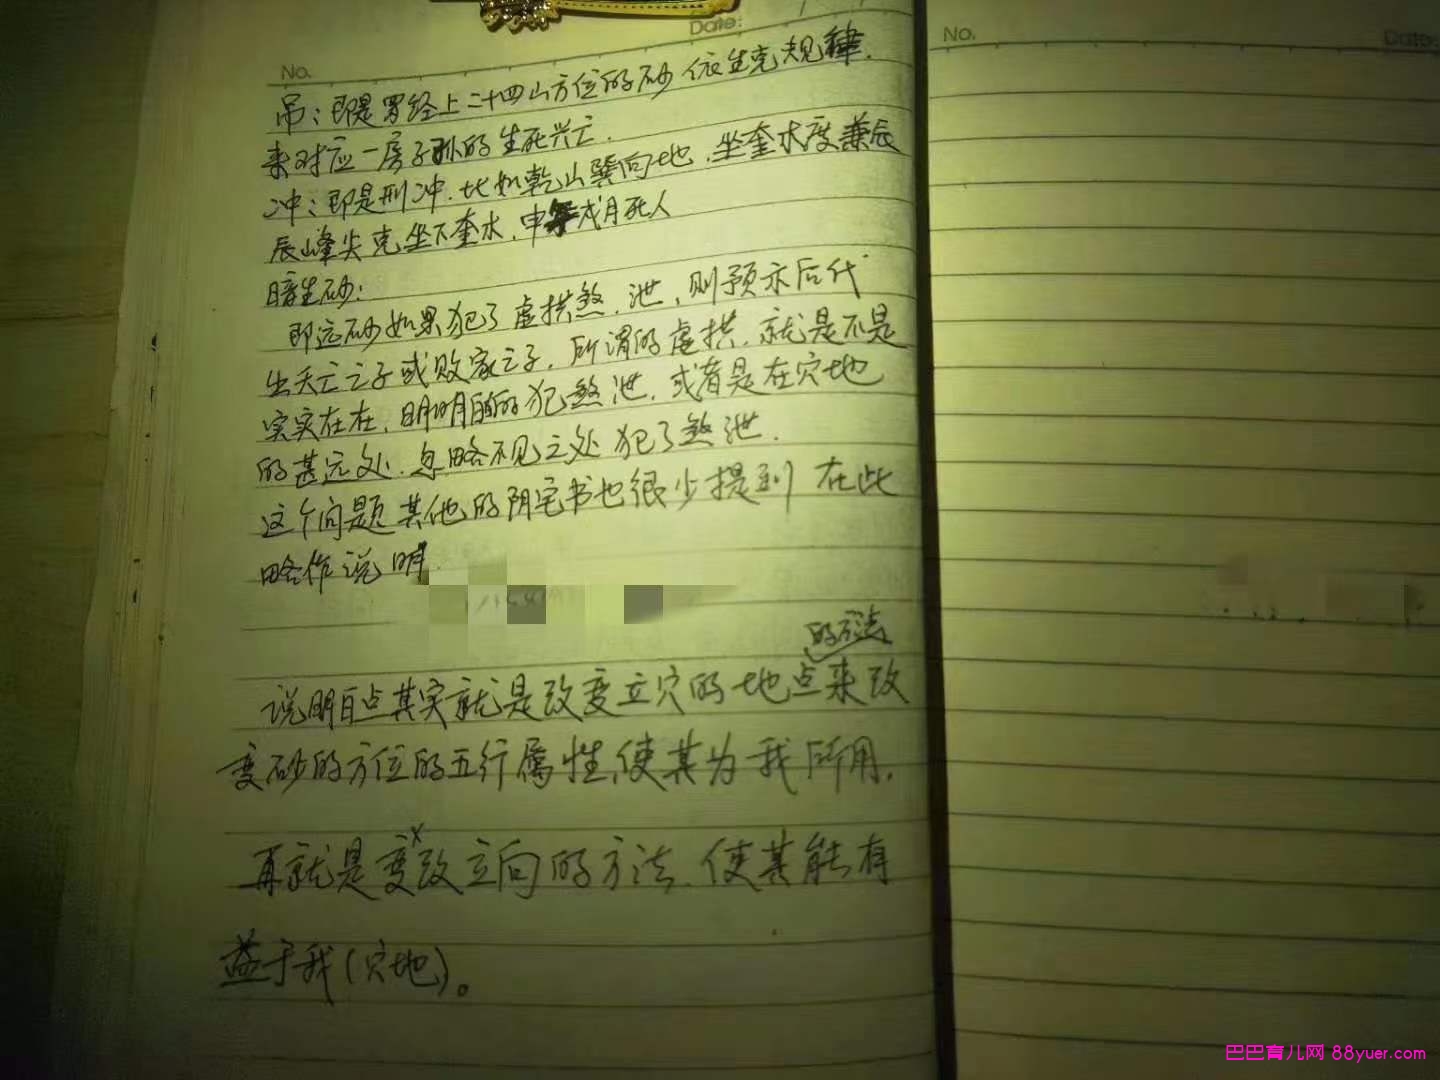 Date:
No.
吊：即是罗经上二十四山方位的砂依生克规律.
来对应一房子孙的生死兴亡.
冲：即是刑冲.比如乾山巽向地.坐奎木度兼辰
辰峰尖克坐下奎木.申年戌月死人
暗生砂：
即远砂如果犯了虚拱煞.泄.则预示后代
出夭亡之子或败家之子.所谓的虚拱.就是不是
实实在在.明明白白的犯煞泄.或者是在穴地
的甚远处.忽略不见之处犯了煞泄.
这个问题其他的阴宅书也很少提到 在此
略作说明.
的方法
说明白点其实就是改变立穴的地点来改
变砂的方位的五行属性,使其为我所用.
再就是变改立向的方法.使其能有
益于我(穴地)。
No.
Date:
巴巴育儿网 88yuer.com